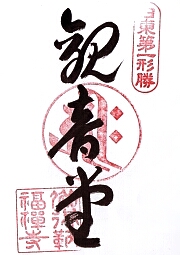 日東第一形勝
観音堂
福禅寺